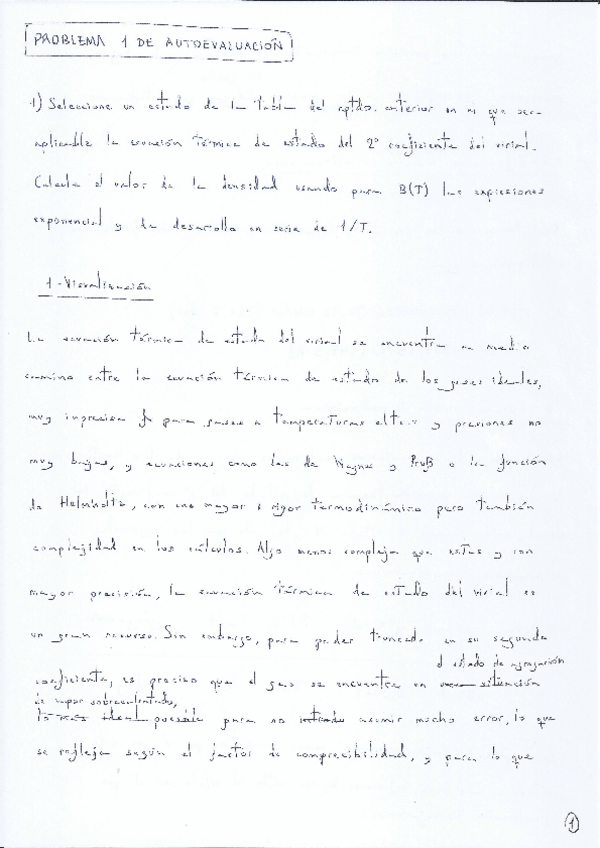 PROBLEMA 1 DE AUTOEVALUACIÓN
1) Seleccione un estado de la tabla del aptdo. anterior en el que sea
aplicable la ecuación térmica de estado del 2º coeficiente del virial.
Calcule el valor de la densidad usando para B(T) las expresiones
exponencial y la desarrollo en serie de 1/T.
1.-Visualización
La ecuación térmica de estado del virial se encuentra a medio
camino entre la ecuación térmica de estado de los gases ideales,
muy imprecisa para gases a temperaturas altas y presiones no
muy bajas, y ecuaciones como las de Wagner y Pruß o la función
de Helmholtz, con una mayor rigor termodinámico pero también
complejidad en los cálculos. Algo menos compleja que estas y con
mayor precisión, la ecuación térmica de estado del virial es
un gran recurso. Sin embargo, para poder truncada en su segundo
el estado de agregación
coeficiente, es preciso que el gas se encuentre en situación
de vapor sobrecalentado,
lo más ideal posible para no asumir mucho error, lo que
se refleja según el factor de compresibilidad, y para lo que
1